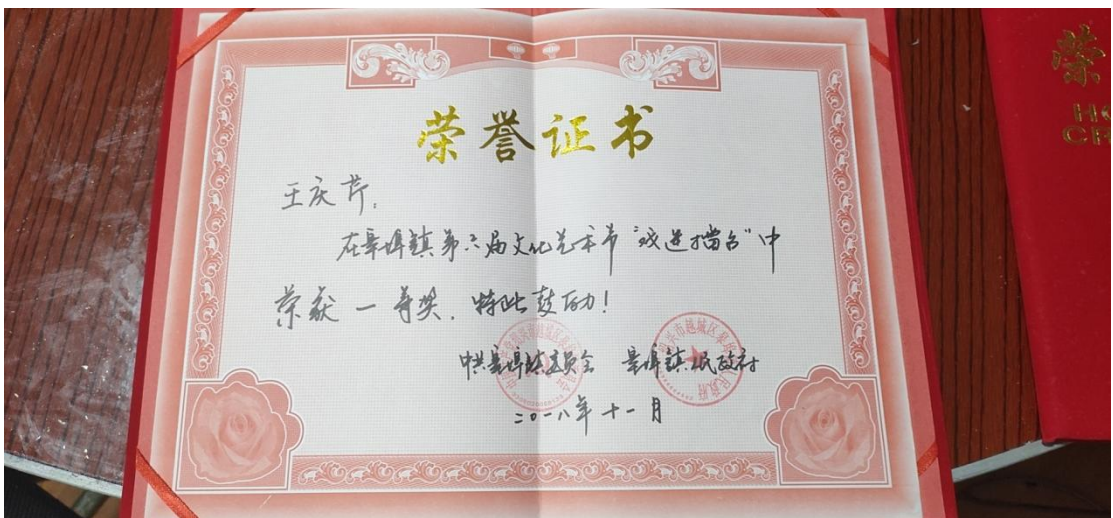 荣誉证书
王庆芹：
在皋埠镇第六届文化艺术节“戏迷擂台”中
荣获一等奖，特此鼓励！
中共皋埠镇委员会 皋埠镇人民政府
二〇一八年十一月
荣